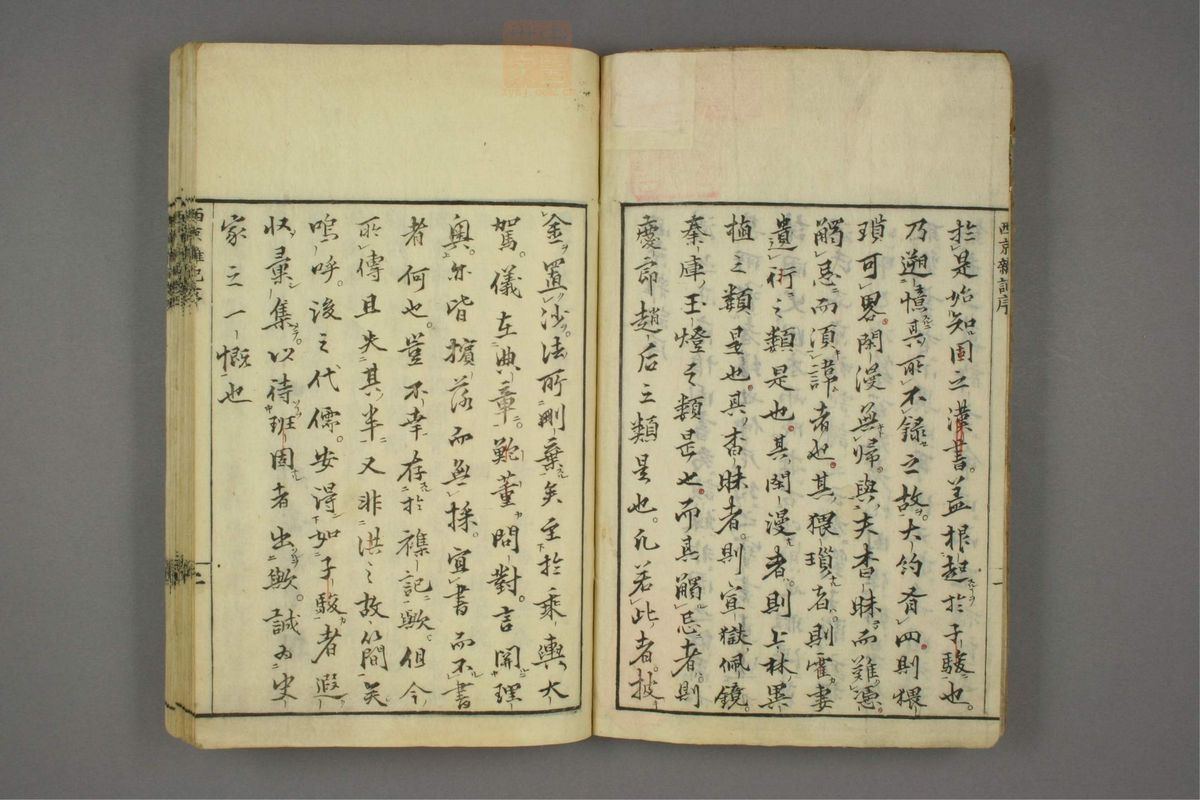 西京雜記序
於是始知固之漢書蓋根起於子駿也
乃遡憶其所不錄之故大約有四則猥
瑣可畧閑漫無歸與夫杳昧而難憑
觸忌而須諱者也其猥瑣者則霍妻
遺衍之類是也其閑漫者則上林異
植之類是也其杳昧者則宣獄佩鏡
秦庫玉燈之類是也而其觸忌者則
慶郎趙后之類是也凡若此者披
金置沙法所刪棄矣至於乘輿大
駕儀在典章鮑董問對言關理
奧亦皆擯落而無採宜書而不書
者何也豈不幸存於襍記歟但今
所傳且失其半又非洪之故簡矣
嗚呼後之代儒安得如子駿者遐
收彙集以待班固者出歟誠為史
家之一慨也
西京雜記序
二